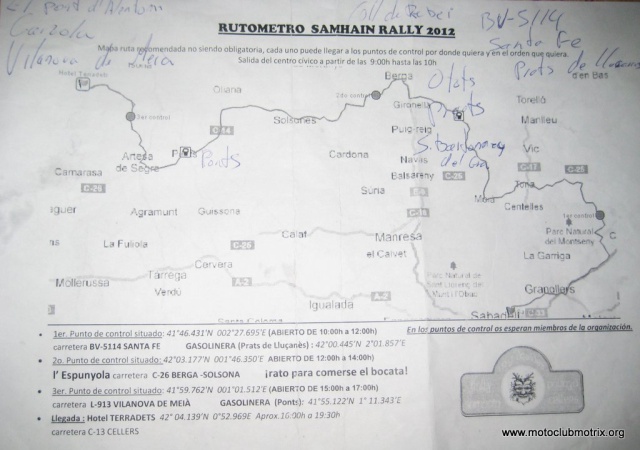 el pont d'Alentorn
Coll de Rabei
BV-5114
Garzola
Santa Fe
Vilanova de Meia
Prats de Llusanes
RUTOMETRO SAMHAIN RALLY 2012
Mapa ruta recomendada no siendo obligatoria, cada uno puede llegar a los puntos de control por donde quiera y en el orden que quiera.
Salida del centro cívico a partir de las 9:00h hasta las 10h
Hotel Terradets
Berga
d'en Bas
Oliana
2do control
Olots
Torelló
3er control
Gironella
Prats
Solsones
Manlleu
C-14
Puig-reig
Artesa de Segre
Ponts
Cardona
Navas
Vic
Camarasa
Balsareny
C-26
C-17
C-25
C-26
Súria
Tona
Moià
Centelles
1er control
guer
Agramunt
Guissona
Parc Natural del Montseny
La Fuliola
C-25
Calaf
Manresa
el Calvet
La Garriga
Cervera
Tàrrega
Mollerussa
Verdú
A-2
Igualada
A-2
Granollers
Sabadell
C-33
En los puntos de control os esperan miembros de la organización.
• 1er. Punto de control situado: 41°46.431'N 002°27.695'E (ABIERTO DE 10:00h a 12:00h)
carretera BV-5114 SANTA FE GASOLINERA (Prats de Lluçanès): 42°00.445'N 2°01.857'E
• 2o. Punto de control situado: 42°03.177'N 001°46.350'E ABIERTO DE 12:00h a 14:00h)
l' Espunyola carretera C-26 BERGA -SOLSONA ¡rato para comerse el bocata!
• 3er. Punto de control situado: 41°59.762'N 001°01.512'E (ABIERTO DE 15:00h a 17:00h)
carretera L-913 VILANOVA DE MEIÀ GASOLINERA (Ponts): 41°55.122'N 1° 11.343'E
• Llegada : Hotel TERRADETS 42° 04.139'N 0°52.969E Aprox.16:00h a 19:30h
carretera C-13 CELLERS
www.motoclubmotrix.org